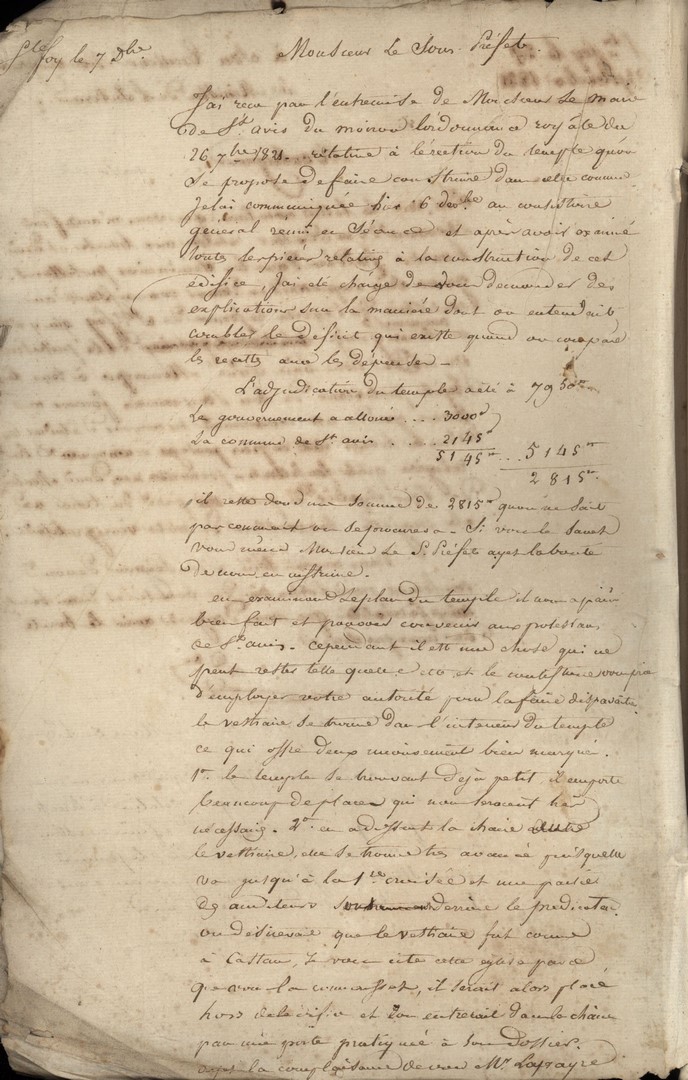 Ste foy le 7 Dbre.
Monsieur Le Sous-Préfet.
J'ai reçu par l'entremise de Monsieur Le maire
de St avis du moiron lordonnance royale du
26 7bre 1821. relative à l'érection du temple qu'on
se propose de faire construire dans cette commune
Je l'ai communiquée hier 6 decbre au consistoire
général réuni en Séance et après avoir examiné
toutes les pièces relatives à la construction de cet
édifice, J'ai été chargé de vous demander des
explications sur la manière dont on entendait
combler le déficit qui existe quand on compare
les recettes avec les dépenses -
L'adjudication du temple a été à 7950
Le gouvernement a alloué .... 3000
La commune de St avis .... 2145
5145 ... 5145
2815
il reste donc une somme de 2815 qu'on ne sait
pas comment on se procurera. Si vous le savez
vous même Monsieur Le S. Préfet ayez la bonté
de nous en instruire.
en examinant le plan du temple il nous a paru
bien fait et pouvoir convenir aux protestans
de St avis. cependant il est une chose qui ne
peut rester telle quelle est et le consistoire vous prie
d'employer votre autorité pour la faire disparaitre
le vestiaire se trouve dans l'interieur du temple
ce qui offre deux inconvenient bien marqué.
1o le temple se trouvant déjà petit il emporte
beaucoup de places qui nous seraient très
nécessaires. 2o en adossant la chaire contre
le vestiaire, elle se trouve très avancée puisquelle
va jusqu'à la 1re croisée et une partie
des auditeurs derrière le predicateur
on désirerait que le vestiaire fut comme
à Castan, je vous cite cette eglise parce
que vous la connaissez, il serait alors placé
hors de l'édifice et l'on entrerait dans la chaire
par une porte pratiquée à son Dossier.
ayez la complaisance de voir Mr Lafraye